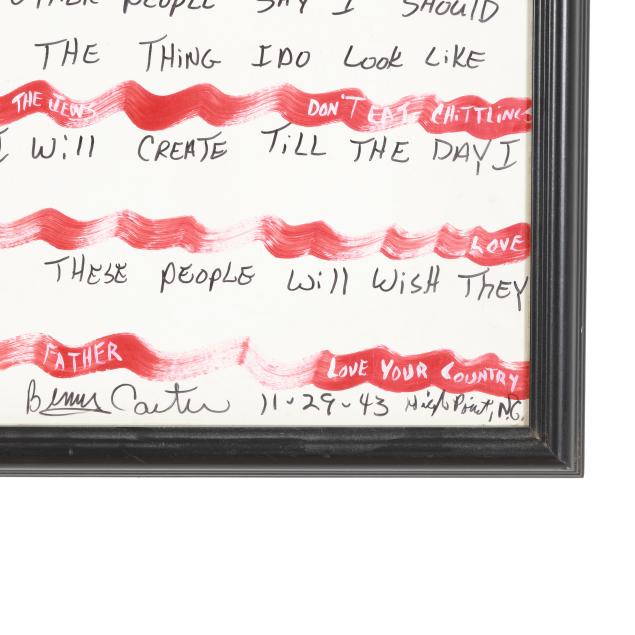 OTHER PEOPLE SAY I SHOULD
THE THING I DO LOOK LIKE
THE JEWS DON'T EAT CHITTLINGS
I WILL CREATE TILL THE DAY I
LOVE
THESE PEOPLE WILL WISH THEY
FATHER LOVE YOUR COUNTRY
Benny Carter 11-29-43 High Point, N.C.